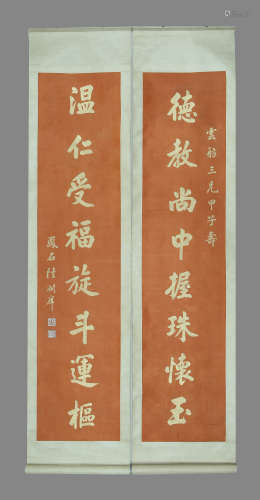 雲舫三兄甲子壽
德教尚中握珠懷玉
温仁受福旋斗運樞
鳳石陸潤庠